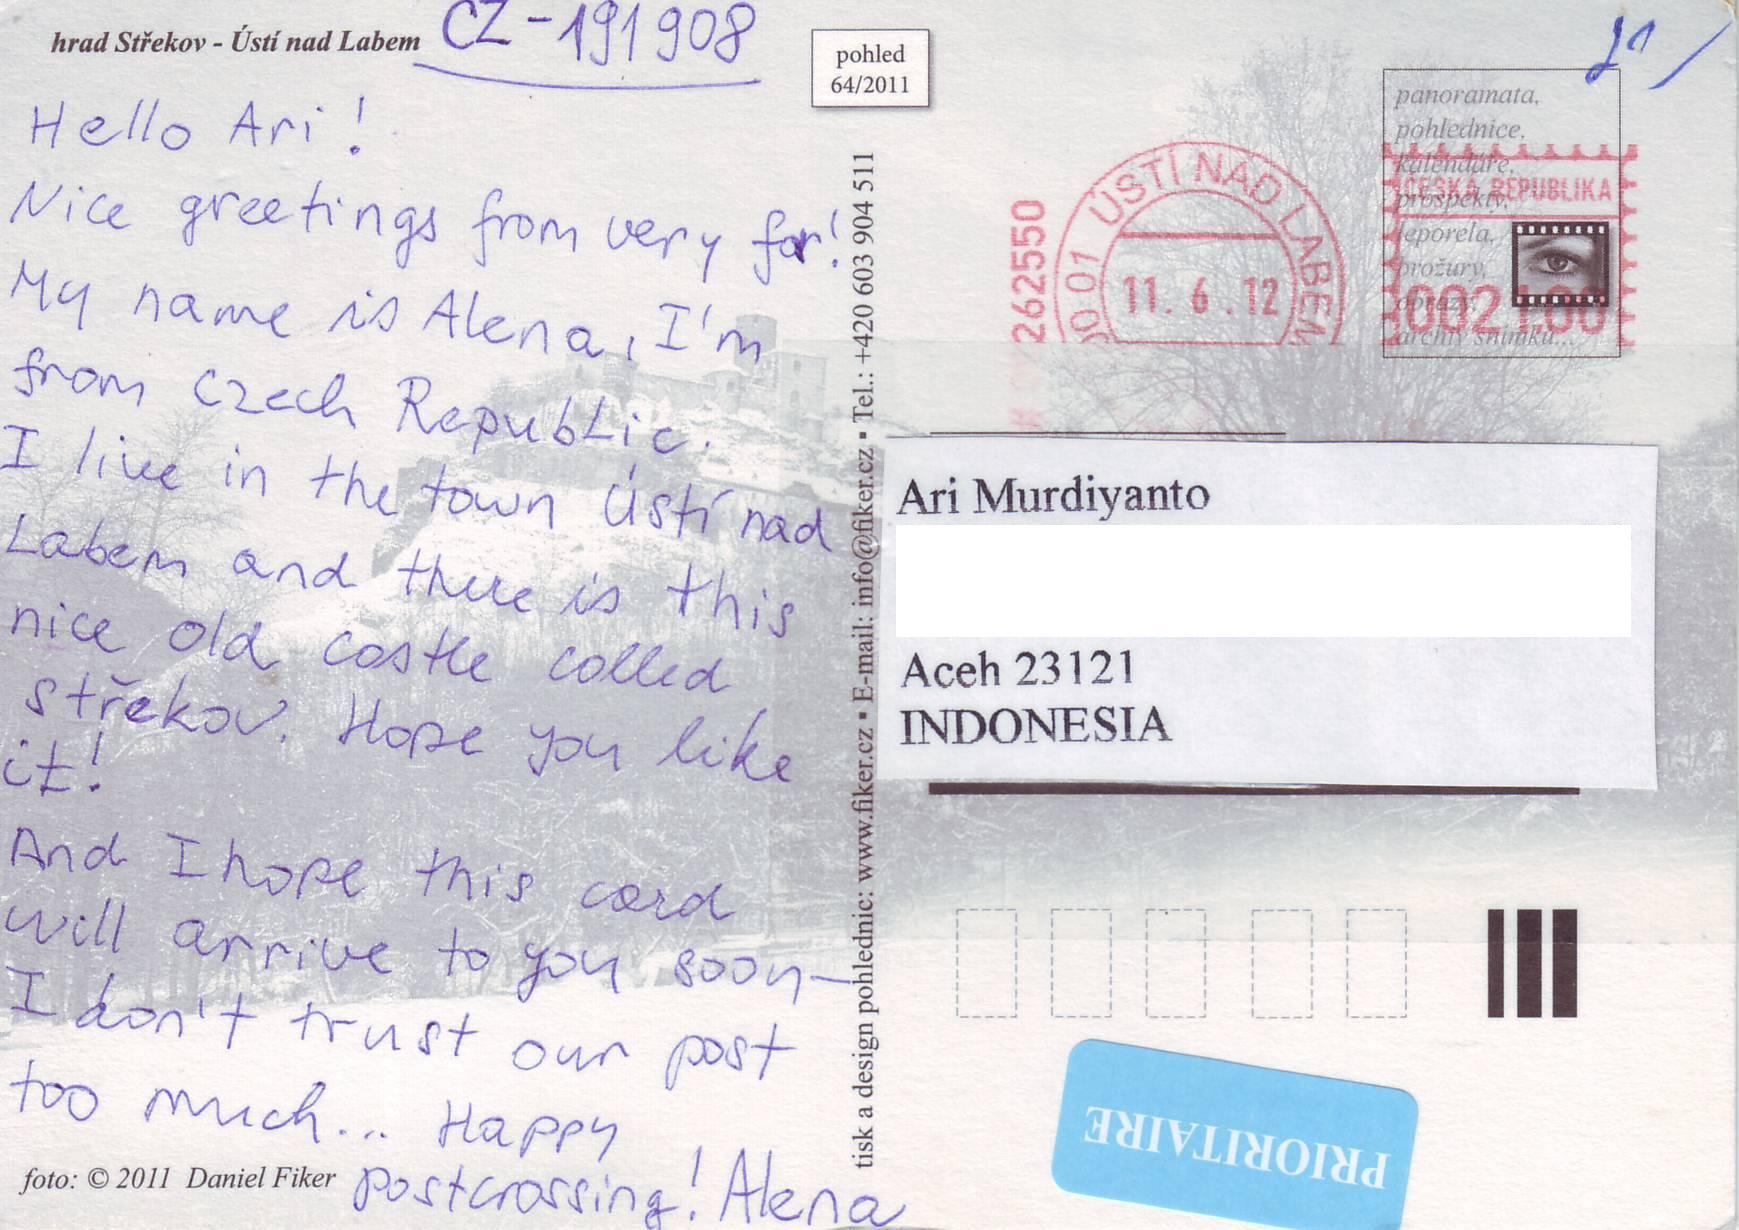 hrad Střekov - Ústí nad Labem
CZ-191908
Hello Ari!
Nice greetings from very far!
My name is Alena, I'm
from Czech Republic.
I live in the town Ústí nad
Labem and there is this
nice old castle called
Střekov. Hope you like
it!
And I hope this card
will arrive to you soon—
I don't trust our post
too much... Happy
postcrossing! Alena
foto: © 2011 Daniel Fiker
pohled
64/2011
tisk a design pohlednic: www.fiker.cz ▪ E-mail: info@fiker.cz ▪ Tel.: +420 603 904 511
262550
01 ÚSTÍ NAD LABEM
11. 6. 12
panoramata,
pohlednice,
kalendáře,
prospekty,
leporela,
brožury,
obrazy,
archiv snímků...
ČESKÁ REPUBLIKA
002100
Ari Murdiyanto
Aceh 23121
INDONESIA
PRIORITAIRE